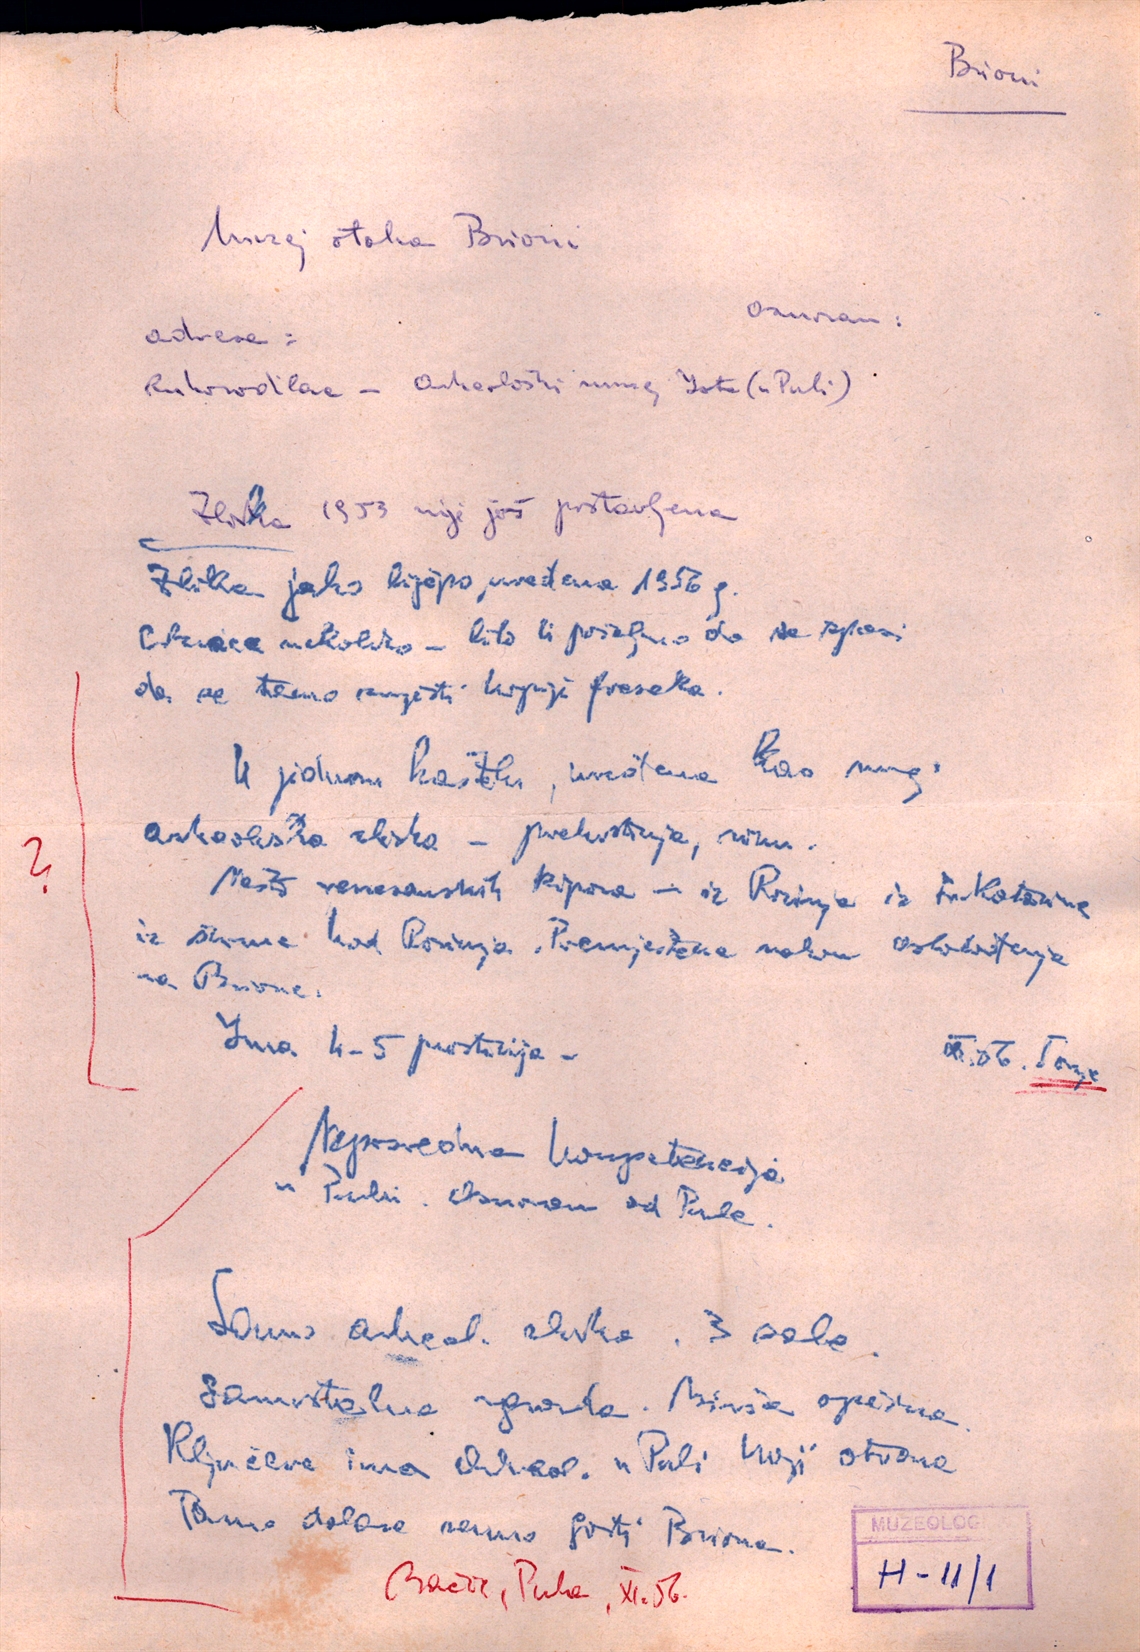 Brioni
Muzej otoka Brioni
osnovan:
adresa:
rukovodilac - Arheološki muzej Istre (u Puli)
Zbirka 1953 nije još postavljena
Zbirka jako lijepo uređena 1956 g.
nekoliko - bilo bi poželjno da se
da se tamo smjesti kopije freska.
U jednom kaštelu, uređena kao muzej
arheološka zbirka - prehistorija, rimn.
Nešto renesansnih kipova - iz Rovinja iz Sv. Katarine
iz šume kod Rovinja. Premještene nakon oslobođenja
na Brione.
Ima 4-5 prostorija -
XI.56.
Neposredna kompetencija
u Puli. Osnovan od Pule.
Samo arheol. zbirka. 3 sale.
Samostalna zgrada. Bivša općina.
Ključeve ima Arheol. u Puli koji otvara
Tamo dolaze samo gosti Briona.
Bačić, Pula, XI.56.
MUZEOLOG
H-11/1